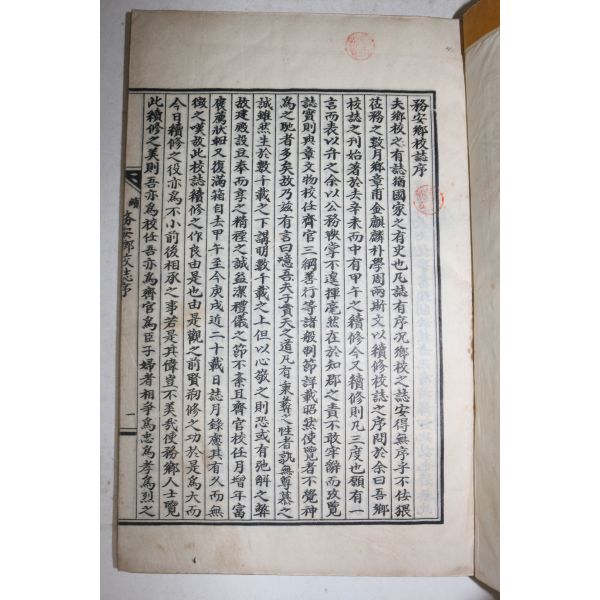 務安鄉校誌序
夫鄉校之有誌猶國家之有史也凡誌有序況鄉校之誌安得無序乎不佞猥
莅務之數月鄉章甫金麒麟朴學周兩斯文以續修校誌之序問於余曰吾鄉
校誌之刊始著於夫辛未而中有甲午之續修今又續修則凡三度也願有一
言而表以弁之余以公務鞅掌不遑揮毫然在於知郡之責不敢牢辭而攷覽
誌實則典章文物校任齊官三綱善行等諸般制節詳載昭然使覽者不覺神
爲之馳者多矣故乃茲有言曰噫吾夫子貫天之道凡有秉彝之性者孰無尊慕之
誠雖然生於數千載之下講明數千載之上但以心敬之則恐或有弛解之弊
故建殿設豆奉而享之精禋之誠益潔禮儀之節不紊且齊官校任月增年富
褒薦狀軸又復滿箱自去甲午至今庚戌近二十載日誌月錄應其有久而無
徵之嘆故此校誌續修之作良由是也由是觀之前賢刱修之功於是爲大而
今日續修之役亦爲不小前後相承之事若是其偉豈不美哉使務鄉人士覽
此續修之美則吾亦爲校任吾亦爲齊官爲臣子婦者相爭爲忠爲孝爲烈之
續 務安鄉校誌序 一